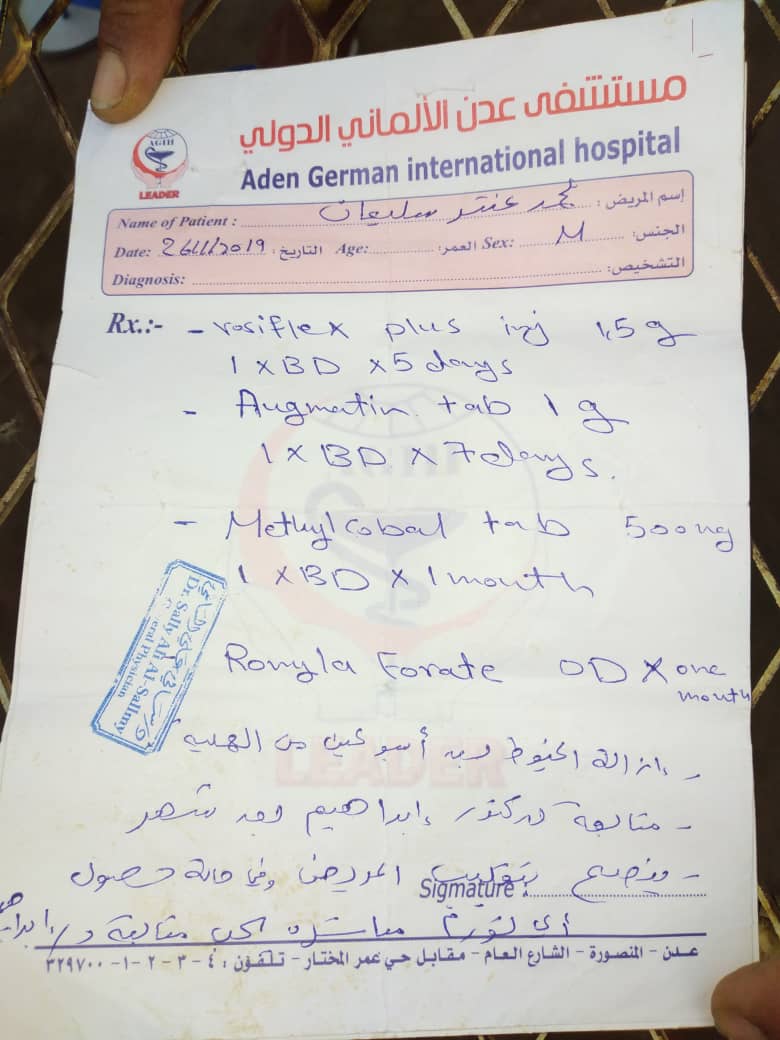 مستشفى عدن الألماني الدولي
Aden German international hospital
AGIH
LEADER
Name of Patient : محمد عنتر سليمان إسم المريض :
Date: 26/1/2019 التاريخ : Age: العمر: Sex: M الجنس:
Diagnosis: التشخيص:
Rx.:- - rosiflex plus inj 1,5 g
1 x BD x 5 days
- Augmatin tab 1 g
1 x BD x 7 days.
- Methylcobal tab 500 mg
1 x BD x 1 month
Ronyla Forate OD x one month
Dr. Sally Ali Al-Sallmy
eral Physician
- إزالة الخيوط بعد أسبوعين من العملية
- متابعة دكتور إبراهيم بعد شهر
- وينصح بتقليب المريض وفي حالة حصول
Sigmature :
أي تورم متابعة د/ إبراهيم
عدن - المنصورة - الشارع العام - مقابل حي عمر المختار - تلفون : ٤ - ٣ - ٢ - ١ - ٣٢٩٧٠٠